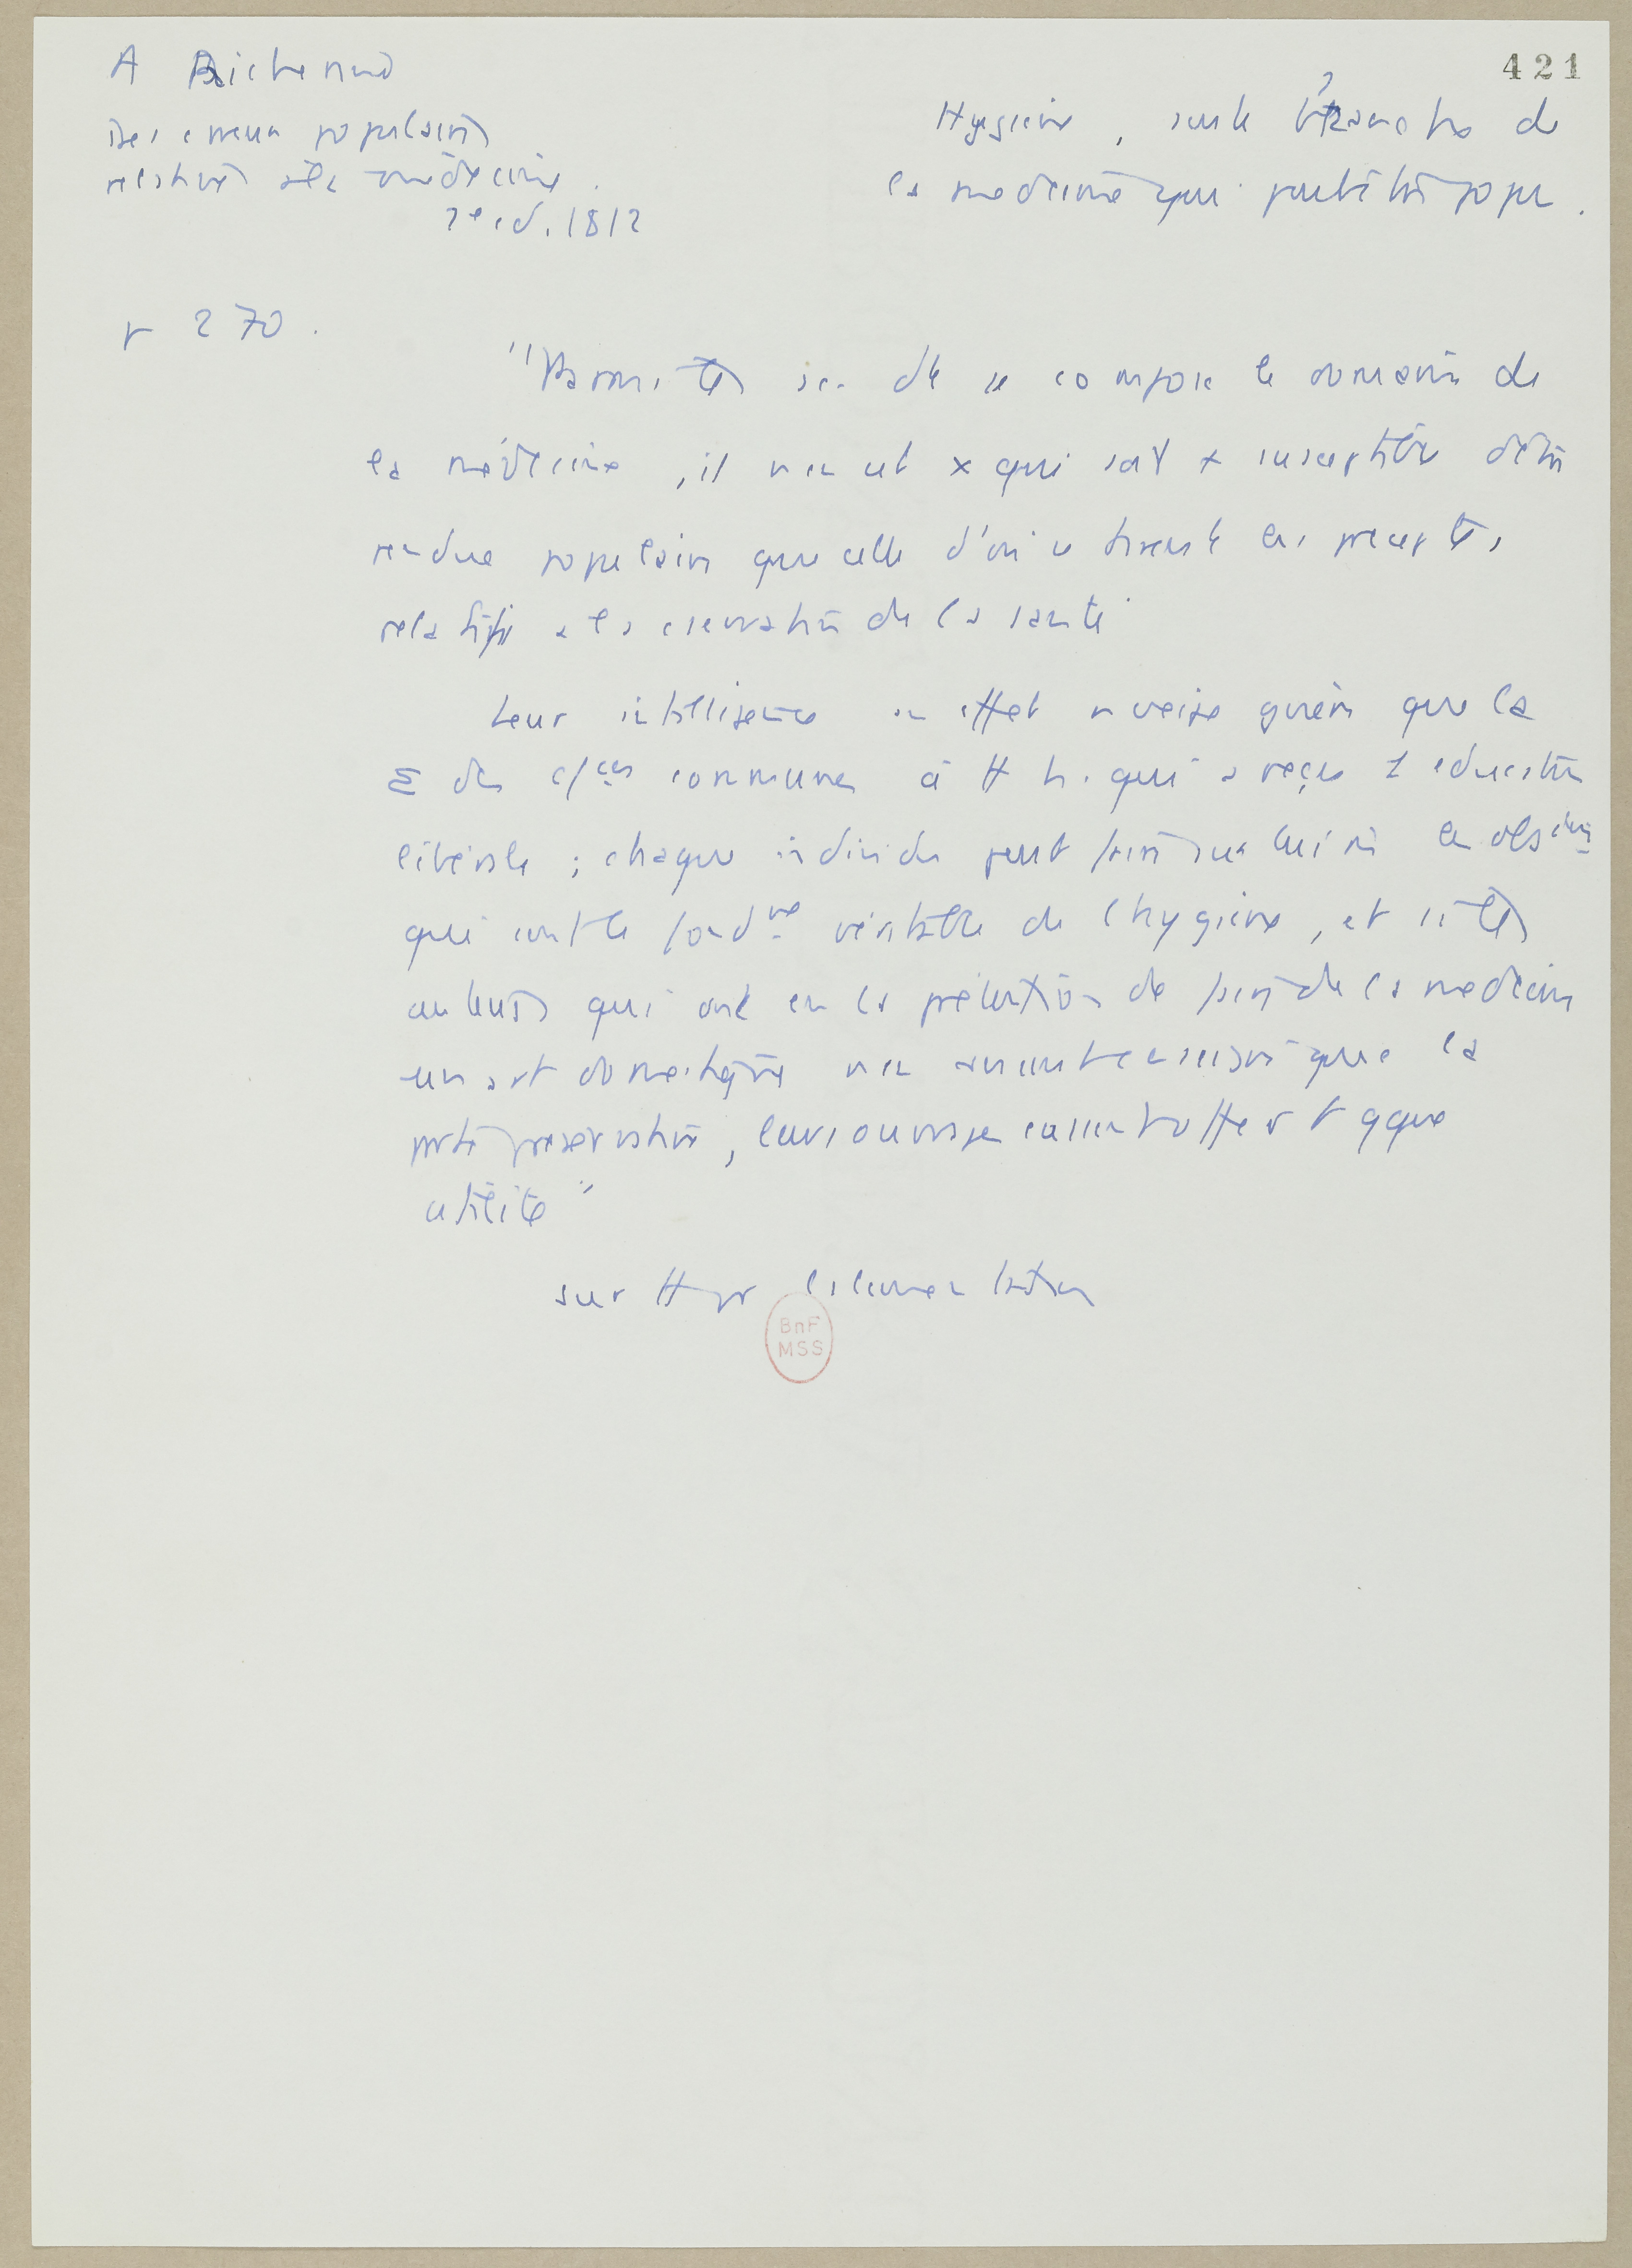 421
A Richerand
Des erreurs populaires
relatives à la médecine.
2e ed. 1812
Hygiène, seule branche de
la médecine qui peut être popu.
p 270.
"Parmi ttes sc. dt se compose le domaine de
la médecine, il n'en est × qui soit + susceptible d'être
rendue populaire que celle d'où se tirent les préceptes
relatifs a la conservation de la santé
Leur intelligence en effet n'exige guère que la
Σ des c/ces communes à tt h. qui a reçu 1 education
libérale ; chaque individu peut faire sur lui m les obsions
qui sont le fondmt véritable de l hygiène, et si ts
auteurs qui ont eu la prétention de faire de la medecine
un art domestique n'en avaient enseigné que la
partie préservative, leurs ouvrages eussent offert qque
utilité"
sur tt pr l'alimentation
BnF
MSS